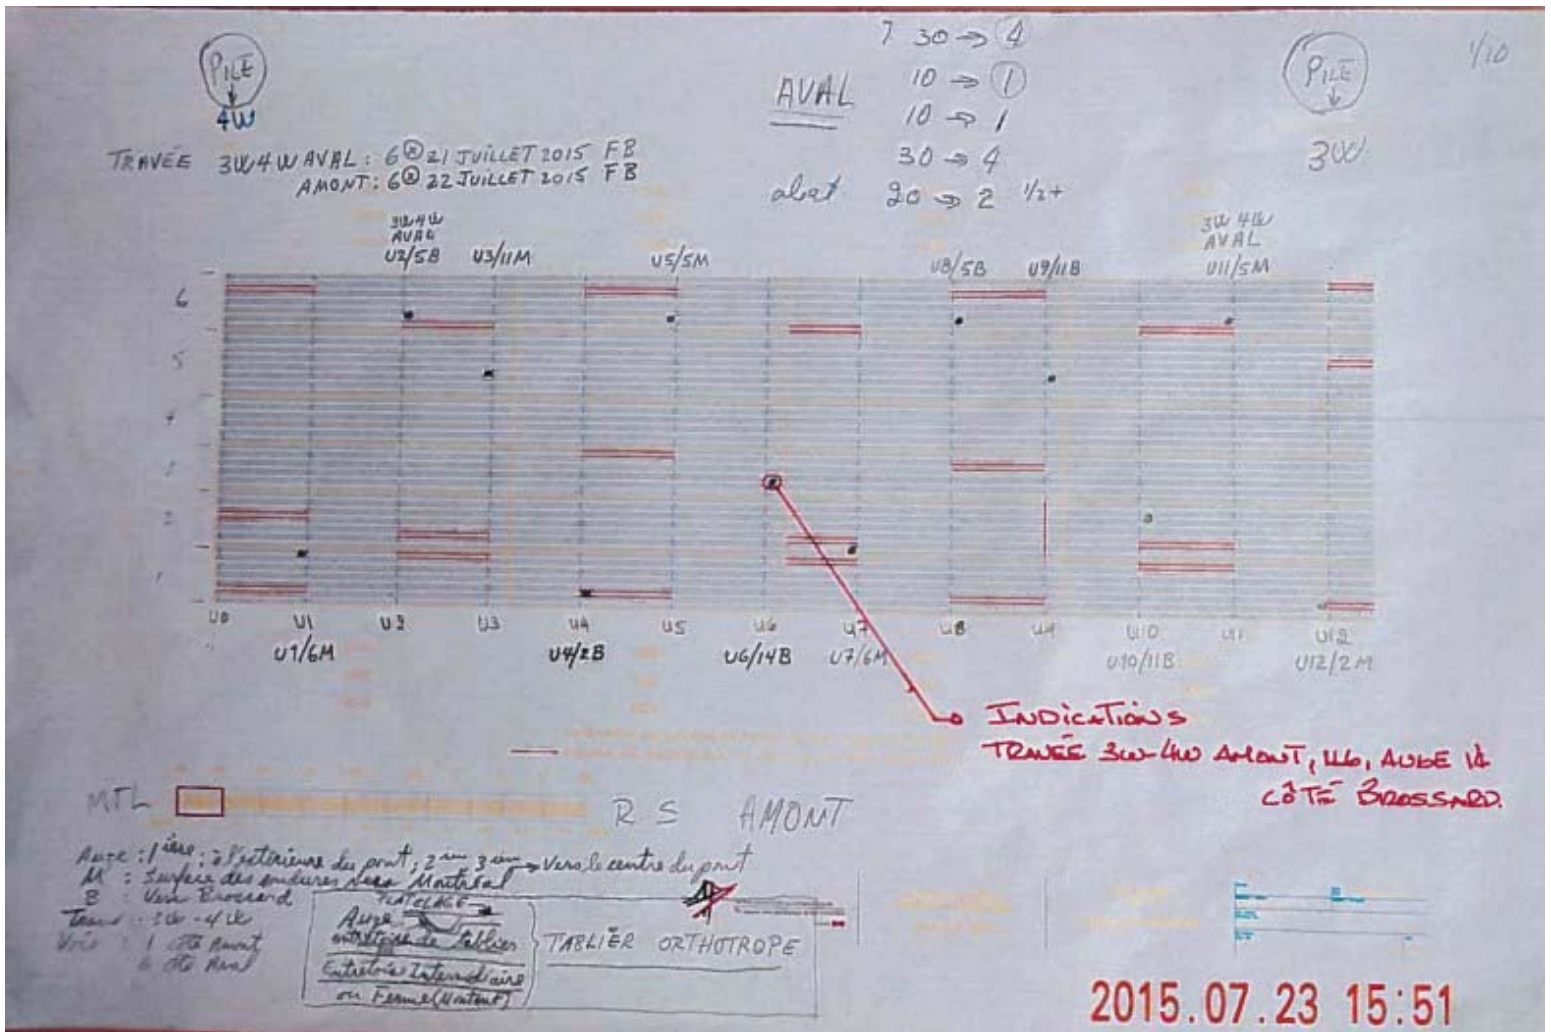 PILE
4W
7 30 → 4
AVAL
10 → 1
10 → 1
30 → 4
20 → 2 1/2+
PILE
3W
1/10
TRAVÉE 3W4W AVAL: 6 21 JUILLET 2015 FB
AMONT: 6 22 JUILLET 2015 FB
3W4W
AVAL
U2/5B
U3/11M
U5/5M
U8/5B
U9/11B
3W 4W
AVAL
U11/5M
6
5
4
3
2
1
U0 U1 U2 U3 U4 U5 U6 U7 U8 U9 U10 U11 U12
U1/6M
U4/2B
U6/14B
U7/6M
U10/11B
U12/2M
INDICATIONS
TRAVÉE 3W-4W AMONT, U6, AUGE 14
CÔTÉ BROSSARD.
MTL
R S AMONT
Auge : 1ière : à l'extérieure du pont, 2 3 → Vers le centre du pont
M : Surface des soudures vers Montréal
B : Vers Brossard
3W-4W
Voie : 1 côté Amont
6 côté Aval
PLATELAGE
Auge
entretoise de tablier
Entretoise Intermédiaire
ou Ferme (Montant)
TABLIER ORTHOTROPE
2015.07.23 15:51